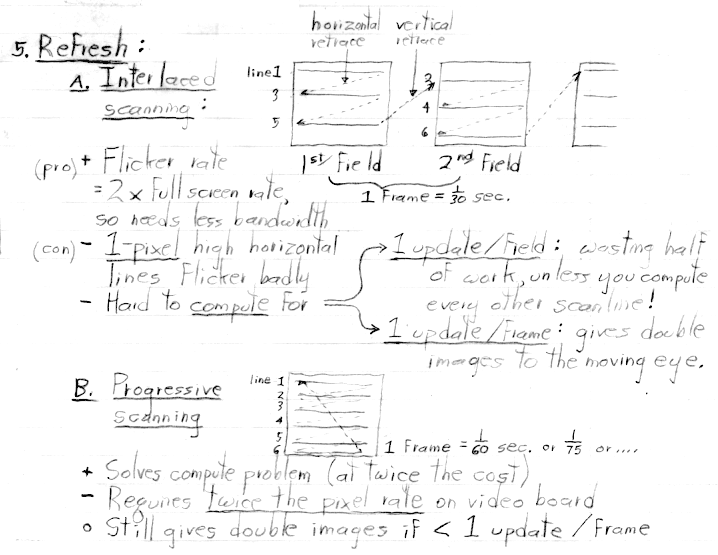 horizontal vertical
retrace retrace
5. Refresh:
A. Interlaced
scanning:
line 1
3
5
2
4
6
1st Field 2nd Field
1 Frame = 1/30 sec.
(pro) + Flicker rate
= 2 x full screen rate,
so needs less bandwidth
(con) - 1-pixel high horizontal
lines flicker badly
- Hard to compute for
1 update/field: wasting half
of work, unless you compute
every other scanline!
1 update/frame: gives double
images to the moving eye.
B. Progressive
scanning
line 1
2
3
4
5
6
1 Frame = 1/60 sec. or 1/75 or ....
+ Solves compute problem (at twice the cost)
- Requires twice the pixel rate on video board
o Still gives double images if < 1 update/frame